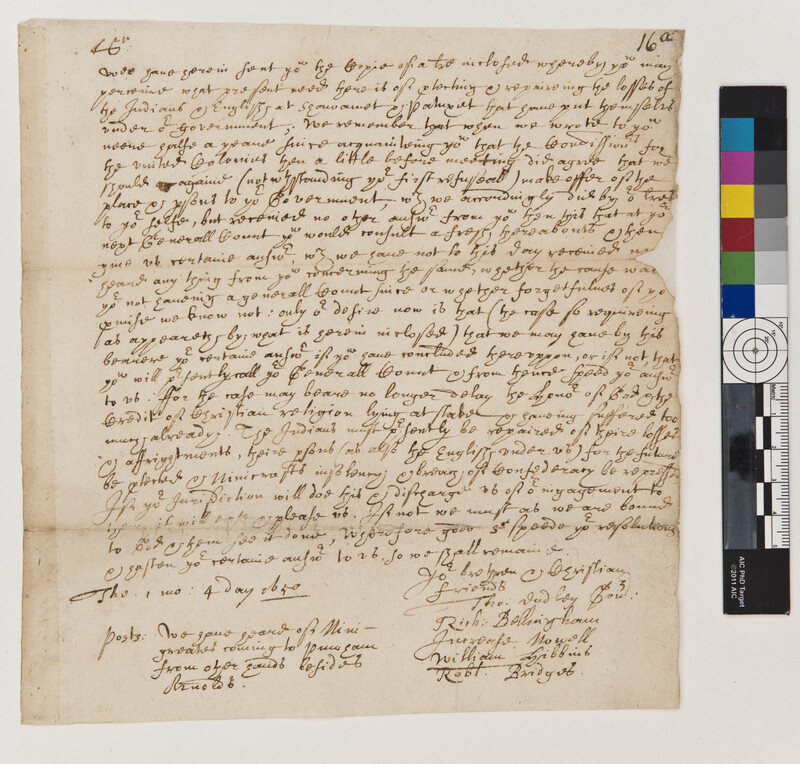 16a
Srs.
Wee have herein sent yow the Copie of a tre inclosed whereby yow may
perceive what present need here is of ptecting & repairing the losses of
the Indians & English at Shawamet & Patuxet that have put themselves
under or Government; We remember that when we wrote to yow
neere halfe a yeare since acquainting yow that the Comissionrs for
the united Colonies then a little before meeting did agree that we
should againe (notwthstanding yor first refusall) make offer of the
place & psons to yor Government, wch we accordingly did by or tres
to yor selfe, but received no other answr from yow then this that at yor
next Generall Court yow would consult a fresh thereabouts & then
give us certaine answr, wch we have not to this day received no
heard any thing from yow concerning the same, whether the cause was
yor not haveing a generall Court since or whether forgetfulnes of yor
pmise we know not: only or desire now is that (the case so requiring
(as appeareth by what is herein inclosed) that we may have by this
bearer yor certaine answr if yow have concluded thereuppon, or if not that
yow will psently call yor Generall Court & from thence speed yor answr
to us: for the case may beare no longer delay the honor of God & the
Credit of Christian religion lying at stake & haveing suffered too
much already. The Indians must psently be repaired of theire losses
& affrightments, theire psons (as also the English under us) for the future
be ptected & Ninicrafts insolency & breach of Confederacy be repressed
If yor Jurisdiction will doe this & discharge us of or engagement to
them it will ease & please us. If not we must as we are bound
to God & them see it done, Wherefore good Srs speede yor resolutions
& hasten yor certaine answr to us. so we shall remaine.
Yor brethren & Christian
friends
The. 1 mo: 4 day 1650
Tho: Dudley Gov:
Rich: Bellingham
Increase Nowell
William Hibbins
Robt. Bridges.
Posts: We have heard of Nini-
greates coming to Pumham
from other hands besides
Arnolds.
AIC PhD Target
©2011 AIC